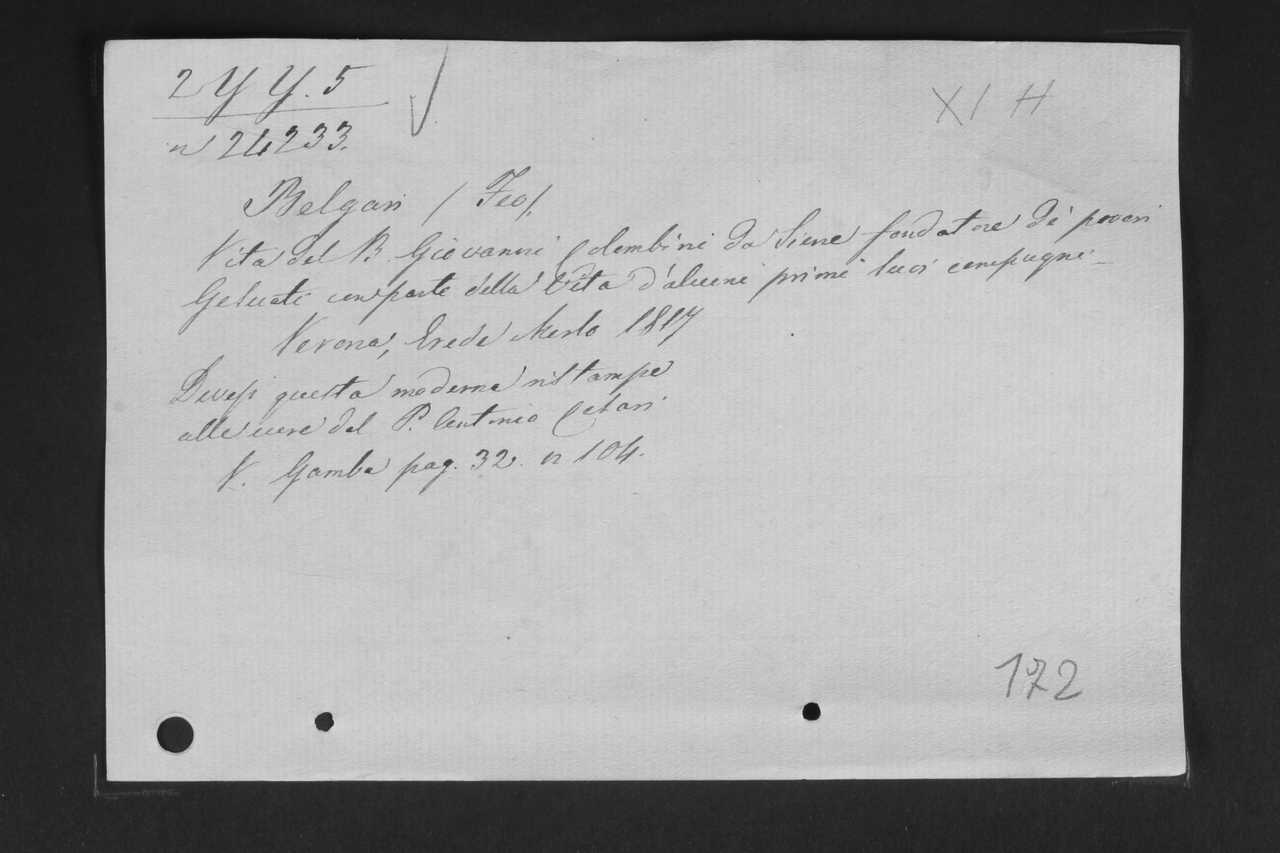 2 Y Y. 5
XI H
n 24233.
Belgari / Feo /.
Vita del B. Giovanni Colombini da Siena fondatore di poveri
Gesuati con parte della Vita d'alcuni primi suoi compagni -
Verona, Erede Merlo 1817
Devesi questa moderna ristampa
alle cure del P. Antonio Cesari
V. Gamba pag. 32. n 104.
172